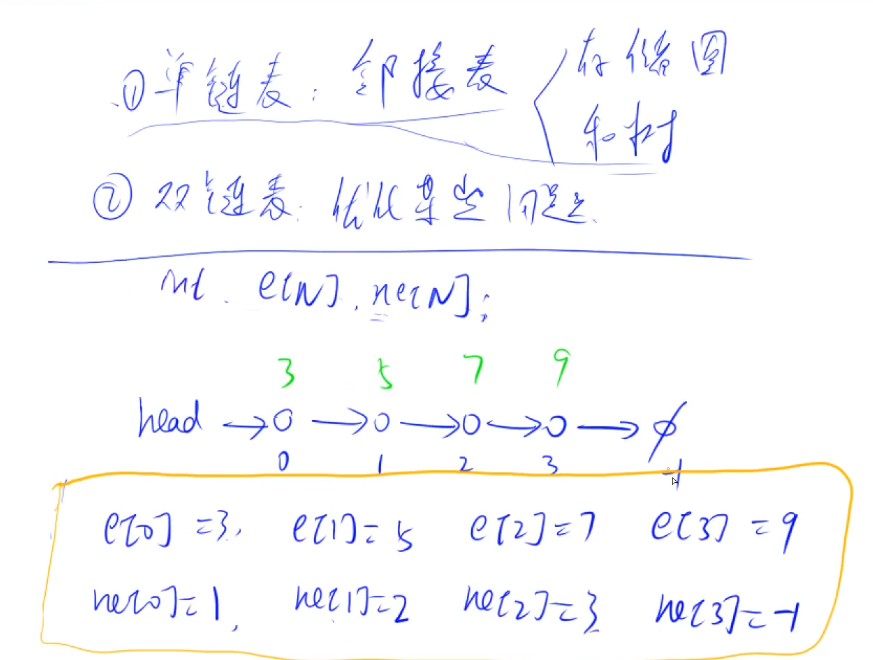 ① 单链表: 邻接表 存储图
和树
② 双链表: 优化某些问题.
int e[N], ne[N];
3 5 7 9
head → 0 → 0 → 0 → 0 → ∅
0 1 2 3 -1
e[0]=3, e[1]=5 e[2]=7 e[3]=9
ne[0]=1, ne[1]=2 ne[2]=3 ne[3]=-1